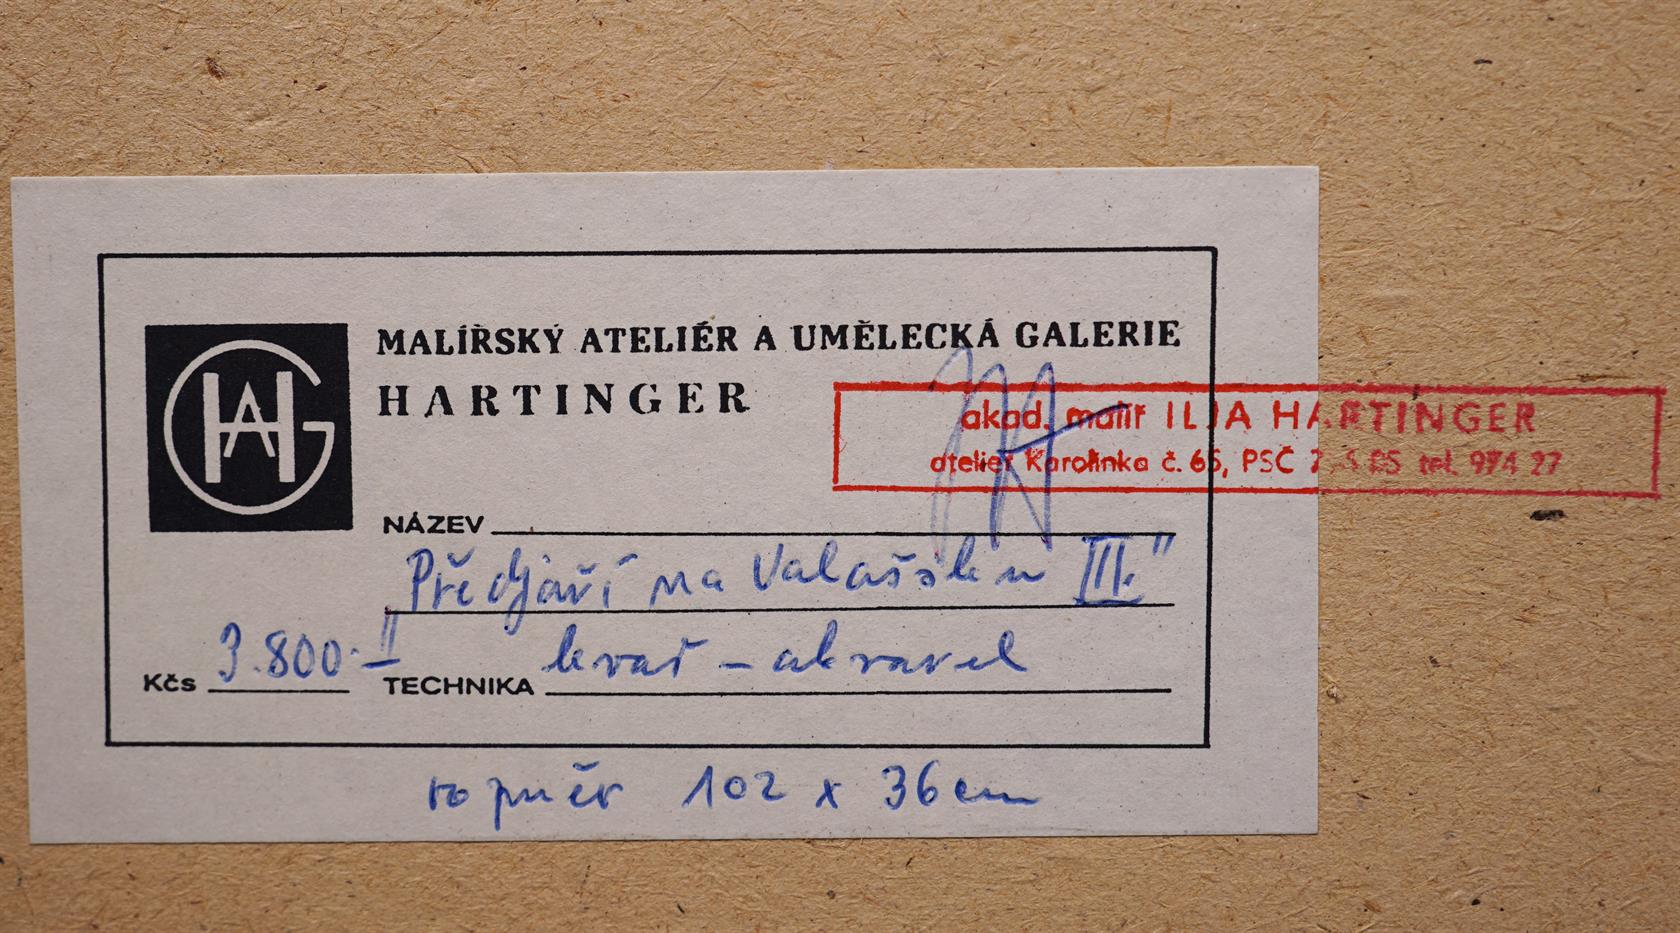 MALÍŘSKÝ ATELIÉR A UMĚLECKÁ GALERIE
HARTINGER
akad. malíř ILJA HARTINGER
atelier Karolinka č. 65, PSČ tel. 974 27
NÁZEV
"Předjaří na Valašsku III."
Kčs 3.800.- TECHNIKA kvaš - akvarel
rozměr 102 x 36 cm